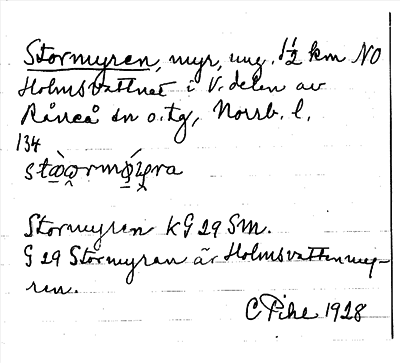 Stormyren, myr, ung. 1½ km NO
Holmsvattnet i V. delen av
Råneå sn o. tg, Norrb. l.
134
Stormyren KG 29 Sm.
G 29 Stormyran är Holmsvattenmy-
ren.
C Pihl 1928